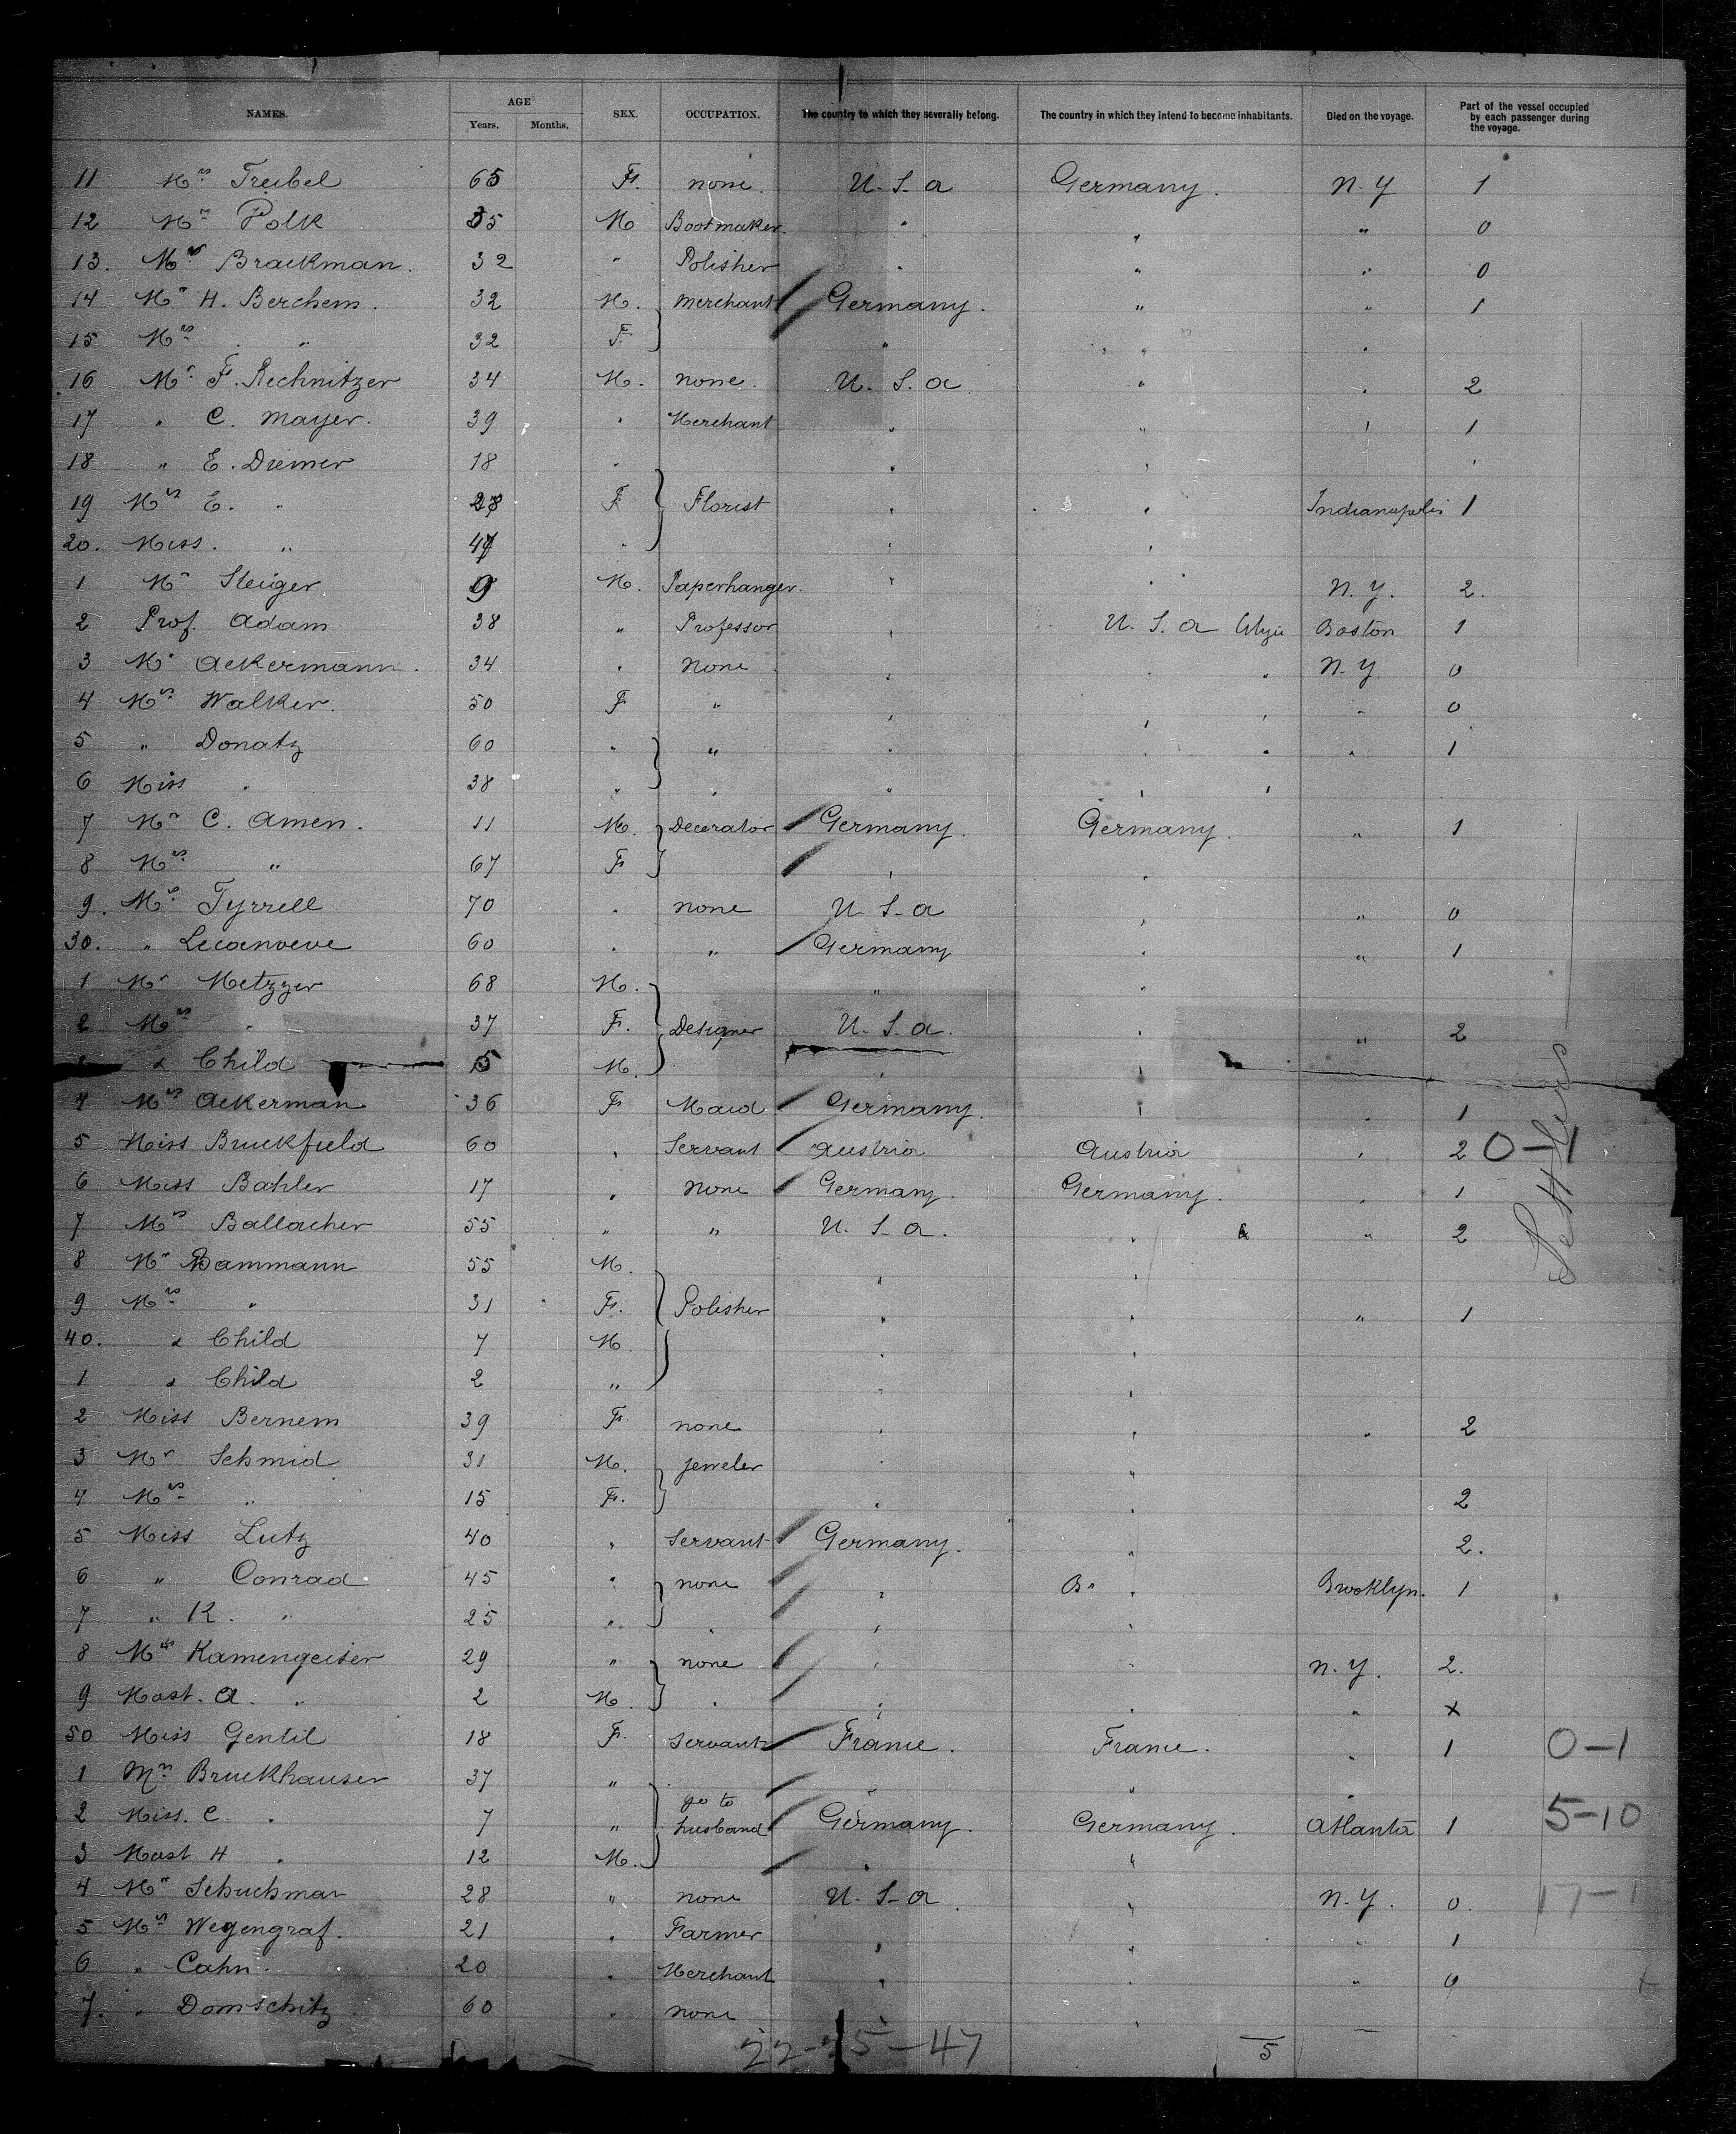 NAMES. AGE SEX. OCCUPATION. The country to which they severally belong. The country in which they intend to become inhabitants. Died on the voyage. Part of the vessel occupied by each passenger during the voyage.
Years. Months.
11 Mrs Treibel 65 F. none. U.S.a Germany. N.Y 1
12 Mr Polk 35 M Bootmaker. " " " 0
13. Mr Brackman. 32 " Polisher " " " 0
14 Mr H. Berchem. 32 M. merchant Germany. " " 1
15 Mrs " 32 F " " "
16 Mr F. Rechnitzer 34 M. none. U.S.a " " 2
17 " C. Mayer. 39 " Merchant " " " 1
18 " E. Diemer 18 " " " "
19 Mrs E. " F Florist " " Indianapolis 1
20. Miss. " " " "
1 Mr Steiger 9 M. Paperhanger. " " N.Y. 2.
2 Prof. Adam 38 " Professor " U.S.a Boston 1
3 Mr Ackermann. 34 " none " " " N.Y. 0
4 Mrs Walker. 50 F " " " " " 0
5 " Donatz 60 " " " " " " 1
6 Miss " 38 " " " " "
7 Mr C. Amen. 11 M. Decorator Germany. Germany. " 1
8 Mrs " 67 F " "
9. Mrs Tyrrell 70 " none U.S.a " " 0
30. " 60 " " Germany " " 1
1 Mr Metzger 68 M. " "
2 Mrs " 37 F. Designer U.S.a. " " 2
& Child 5 M. " "
4 Mrs Ackerman 36 F Maid Germany. " " 1
5 Miss Bruckfield 60 " Servant Austria Austria " 2 0-1
6 Miss Bahler 17 " none Germany. Germany. " 1
7 Mrs Ballacher 55 " " U.S.a. " " 2
8 Mr Bammann 55 M. " "
9 Mrs " 31 F. Polisher " " " 1
40. & Child 7 M. " "
1 & Child 2 " " "
2 Miss Bernem 39 F. none " " " 2
3 Mr Schmid 31 M. jeweler " "
4 Mrs " 15 F. " " 2
5 Miss Lutz 40 " Servant Germany. " 2.
6 " Conrad 45 " none " " Brooklyn. 1
7 " K. " 25 " " " "
8 Mrs Kamengeiser 29 " none " " N.Y. 2.
9 Mast. A. " 2 M. " " " " x
50 Miss Gentil 18 F. Servant France. France. " 1 0-1
1 Mrs Bruckhauser 37 " " " "
2 Miss. C " 7 " go to husband Germany. Germany. Atlanta 1 5-10
3 Mast H " 12 M. " "
4 Mr Schuchman 28 " none U.S.a. " N.Y. 0. 17-1
5 Mrs Wegengraf. 21 " Farmer " " " 1
6 " Cahn. 20 " Merchant " " " 0
7. " Domschitz. 60 " none " "
5